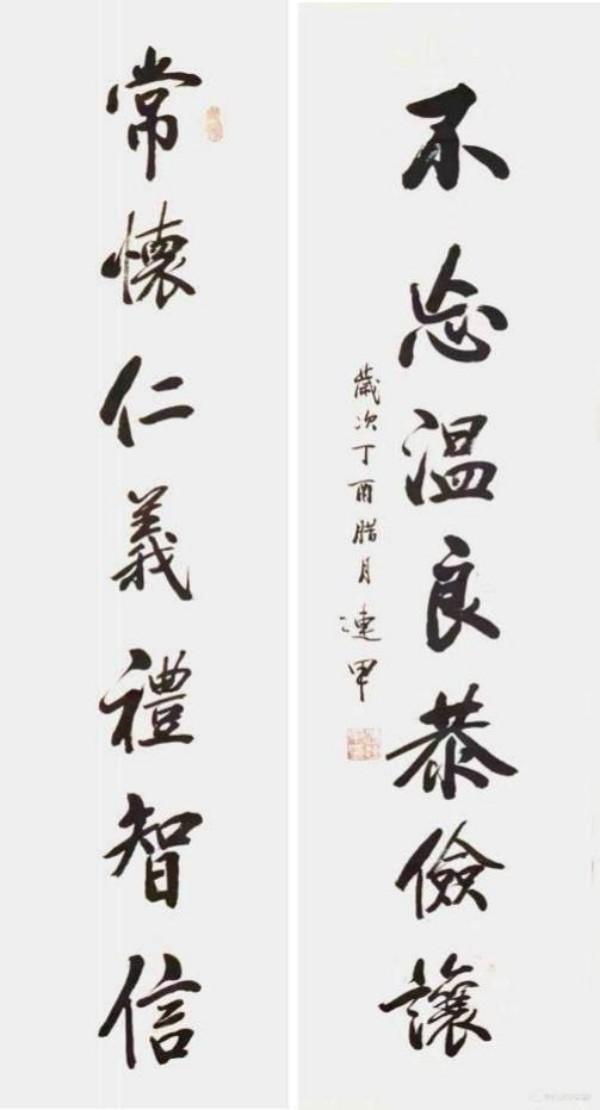 常懷仁義禮智信
不忘温良恭儉讓
歲次丁酉腊月漣甲